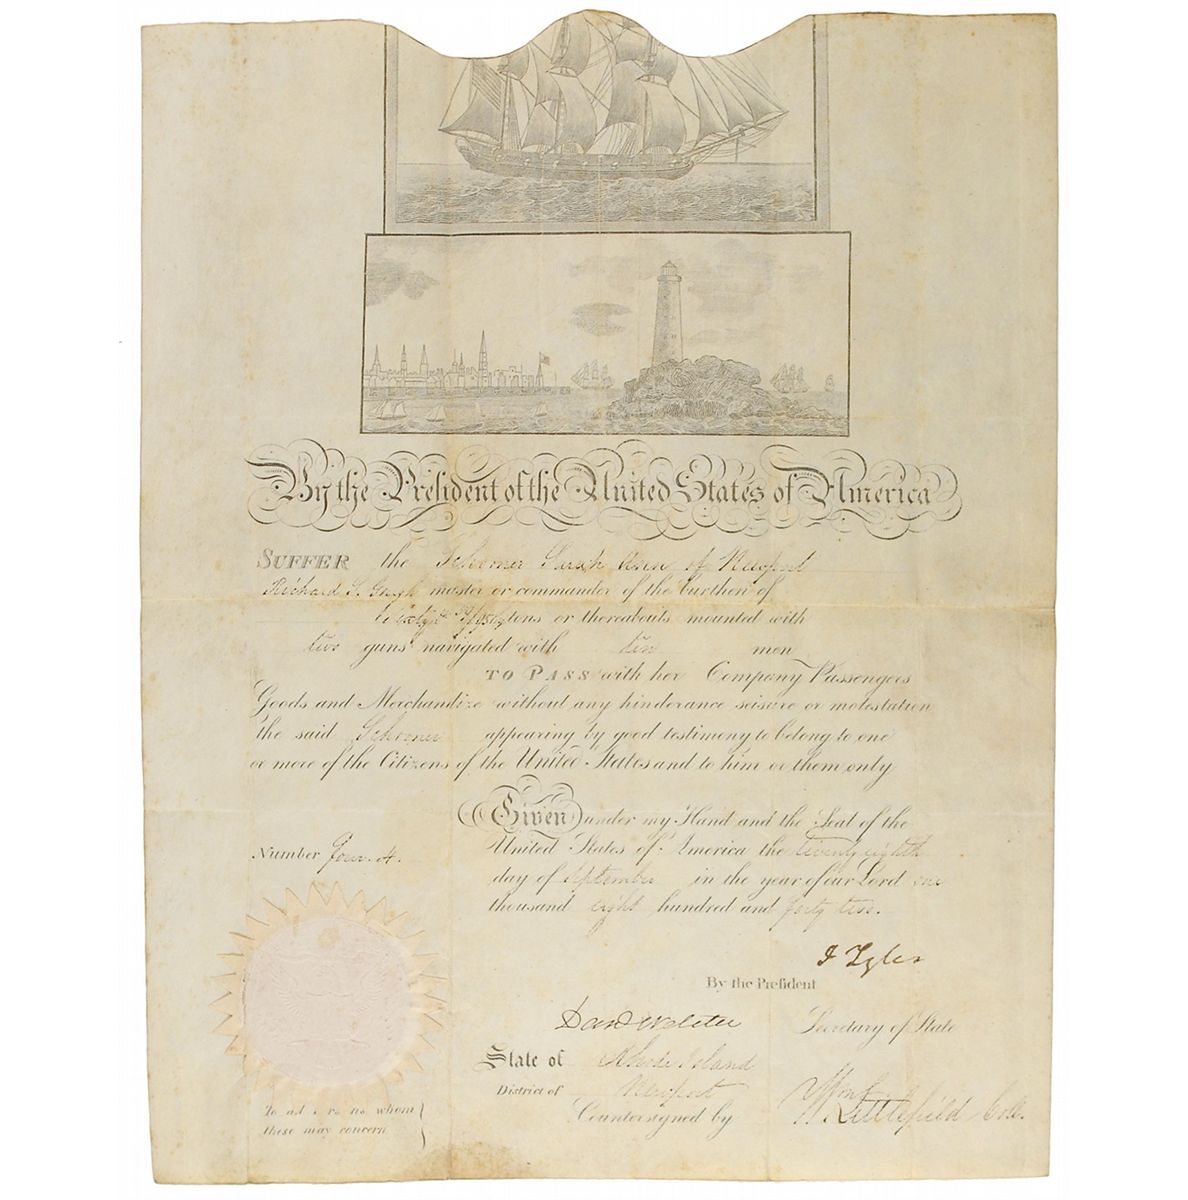 By the President of the United States of America
SUFFER the Schooner Sarah Ann of Newport
Richard S. master or commander of the burthen of
tons or thereabouts mounted with
two guns navigated with ten men
TO PASS with her Company Passengers
Goods and Merchandize without any hinderance seisure or molestation
the said Schooner appearing by good testimony to belong to one
or more of the Citizens of the United States and to him or them only
Given under my Hand and the Seal of the
United States of America the twenty eighth
day of September in the year of our Lord one
thousand eight hundred and forty two.
Number Four. 4.
J Tyler
By the Preſident
Danl Webster Secretary of State
State of Rhode Island
District of Newport
Countersigned by Wm Littlefield Coll.
To all persons whom
these may concern